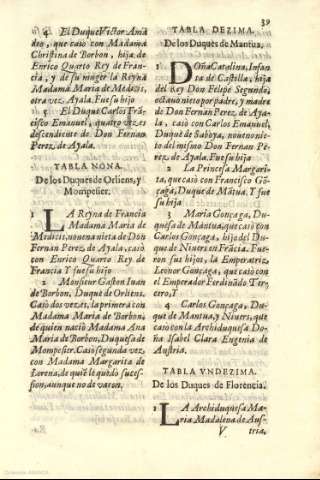 39
4 El Duque Victor Ama
deo, que casò con Madama
Christina de Borbon, hija de
Enrico Quarto Rey de Fran-
cia, y de su muger la Reyna
Madama Maria de Medicis,
otra vez, Ayala. Fue su hijo
5 El Duque Carlos Frã-
cisco Emanuel, quatro vezes
descendiente de Don Fernan
Perez de Ayala.
TABLA NONA.
De los Duques de Orliens, y
Mompesier.
1 LA Reyna de Francia
Madama Maria de
Medicis, nouena nieta de Don
Fernan Perez de Ayala, casò
con Enrico Quarto Rey de
Francia. Y fue su hijo
2 Monsieur Gaston Iuan
de Borbon, Duque de Orliens.
Casò dos vezes, la primera con
Madama Maria de Borbon,
de quien naciò Madama Ana
Maria de Borbon, Duquesa de
Mompesier. Casò segunda vez,
con Madama Margarita de
Lorena, de quiẽ le quedò suces-
sion, aunque no de varon.
TABLA DEZIMA.
De los Duques de Mantua.
1 DOña Catalina, Infan-
ta de Castilla, hija
del Rey Don Felipe Segundo,
octauo nieto por padre, y madre
de Don Fernan Perez de Aya-
la, casò con Carlos Emanuel,
Duque de Saboya, noueno nie-
to del mismo Don Fernan Pe-
rez de Ayala. Fue su hija
2 La Princesa Margari-
ta, que casò con Francisco Gõ-
çaga, Duque de Mãtua. Y fue
su hija
3 Maria Gonçaga, Du-
quesa de Mantua, que casò con
Carlos Gonçaga, hijo del Du-
que de Niuers en Frãcia. Fue-
ron sus hijos, la Emperatriz
Leonor Gonçaga, que casò con
el Emperador Ferdinãdo Ter-
cero, I
4 Carlos Gonçaga, Du-
que de Mantua, y Niuers, que
casò con la Archiduquesa Do-
ña Isabel Clara Eugenia de
Austria.
TABLA VNDEZIMA.
De los Duques de Florencia.
1 LA Archiduquesa Ma-
ria Madalena de Aus-
V. tria,